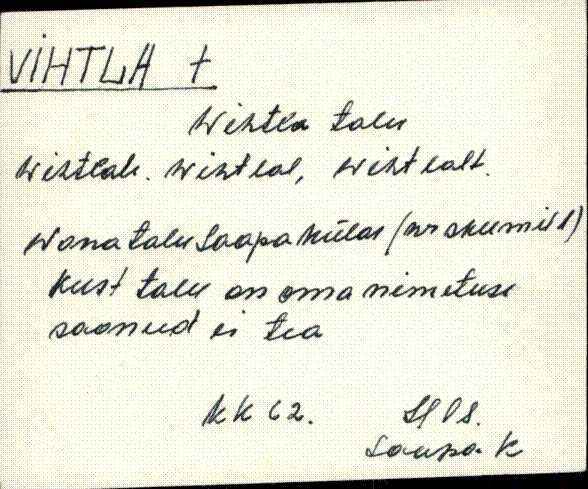 VIHTLA t
Wihtla talu
Wihtlale. Wihtlal, Wihtlalt.
Wana talu Laapa külas (
Kust talu on oma nimetuse
saanud ei tea
KK 62.
k